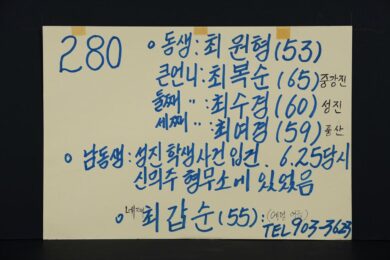 280
○ 동생: 최원형(53)
큰언니: 최복순(65)중강진
둘째 〃: 최수경(60)성진
세째 〃: 최여경(59)풍산
○ 남동생: 성진 학생사건 입건. 6.25당시
신의주 형무소에 있었음
○ 네째 최갑순(55):
TEL 903-3623